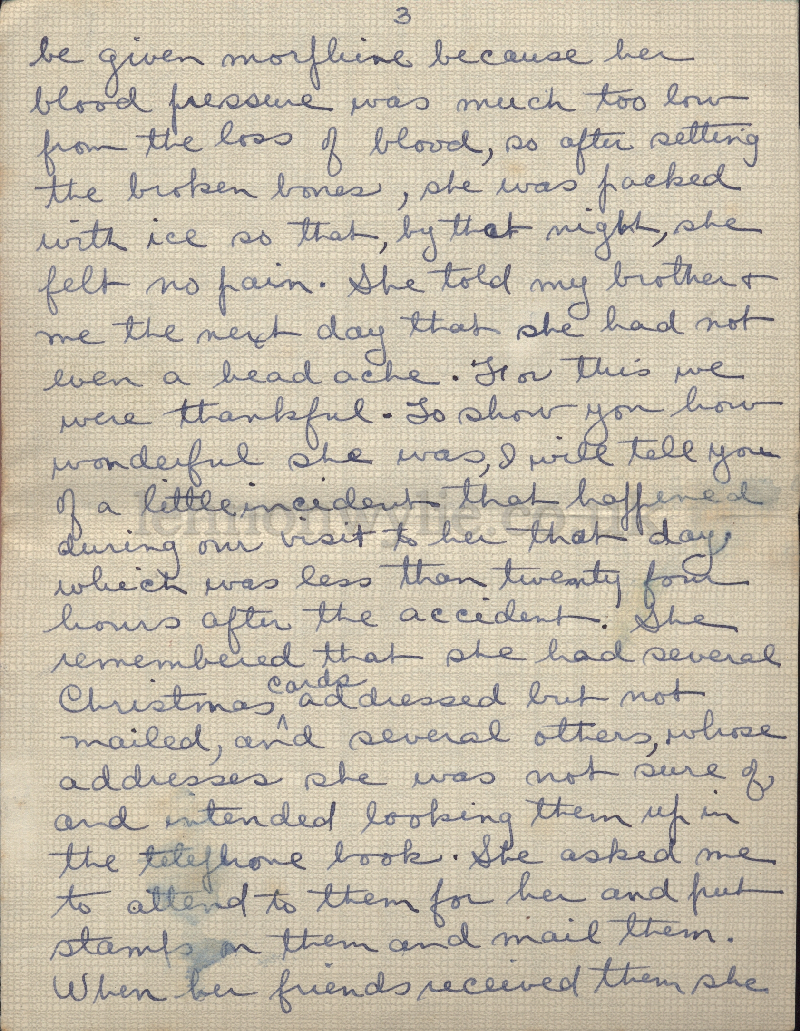 3
be given morphine because her
blood pressure was much too low
from the loss of blood, so after setting
the broken bones, she was packed
with ice so that, by that night, she
felt no pain. She told my brother &
me the next day that she had not
even a head ache. For this we
were thankful. To show you how
wonderful she was, I will tell you
of a little incident that happened
during our visit to her that day,
which was less than twenty four
hours after the accident. She
remembered that she had several
cards
Christmas ^ addressed but not
mailed, and several others, whose
addresses she was not sure of,
and intended looking them up in
the telephone book. She asked me
to attend to them for her and put
stamps on them and mail them.
When her friends received them she
lennonwylie.co.uk